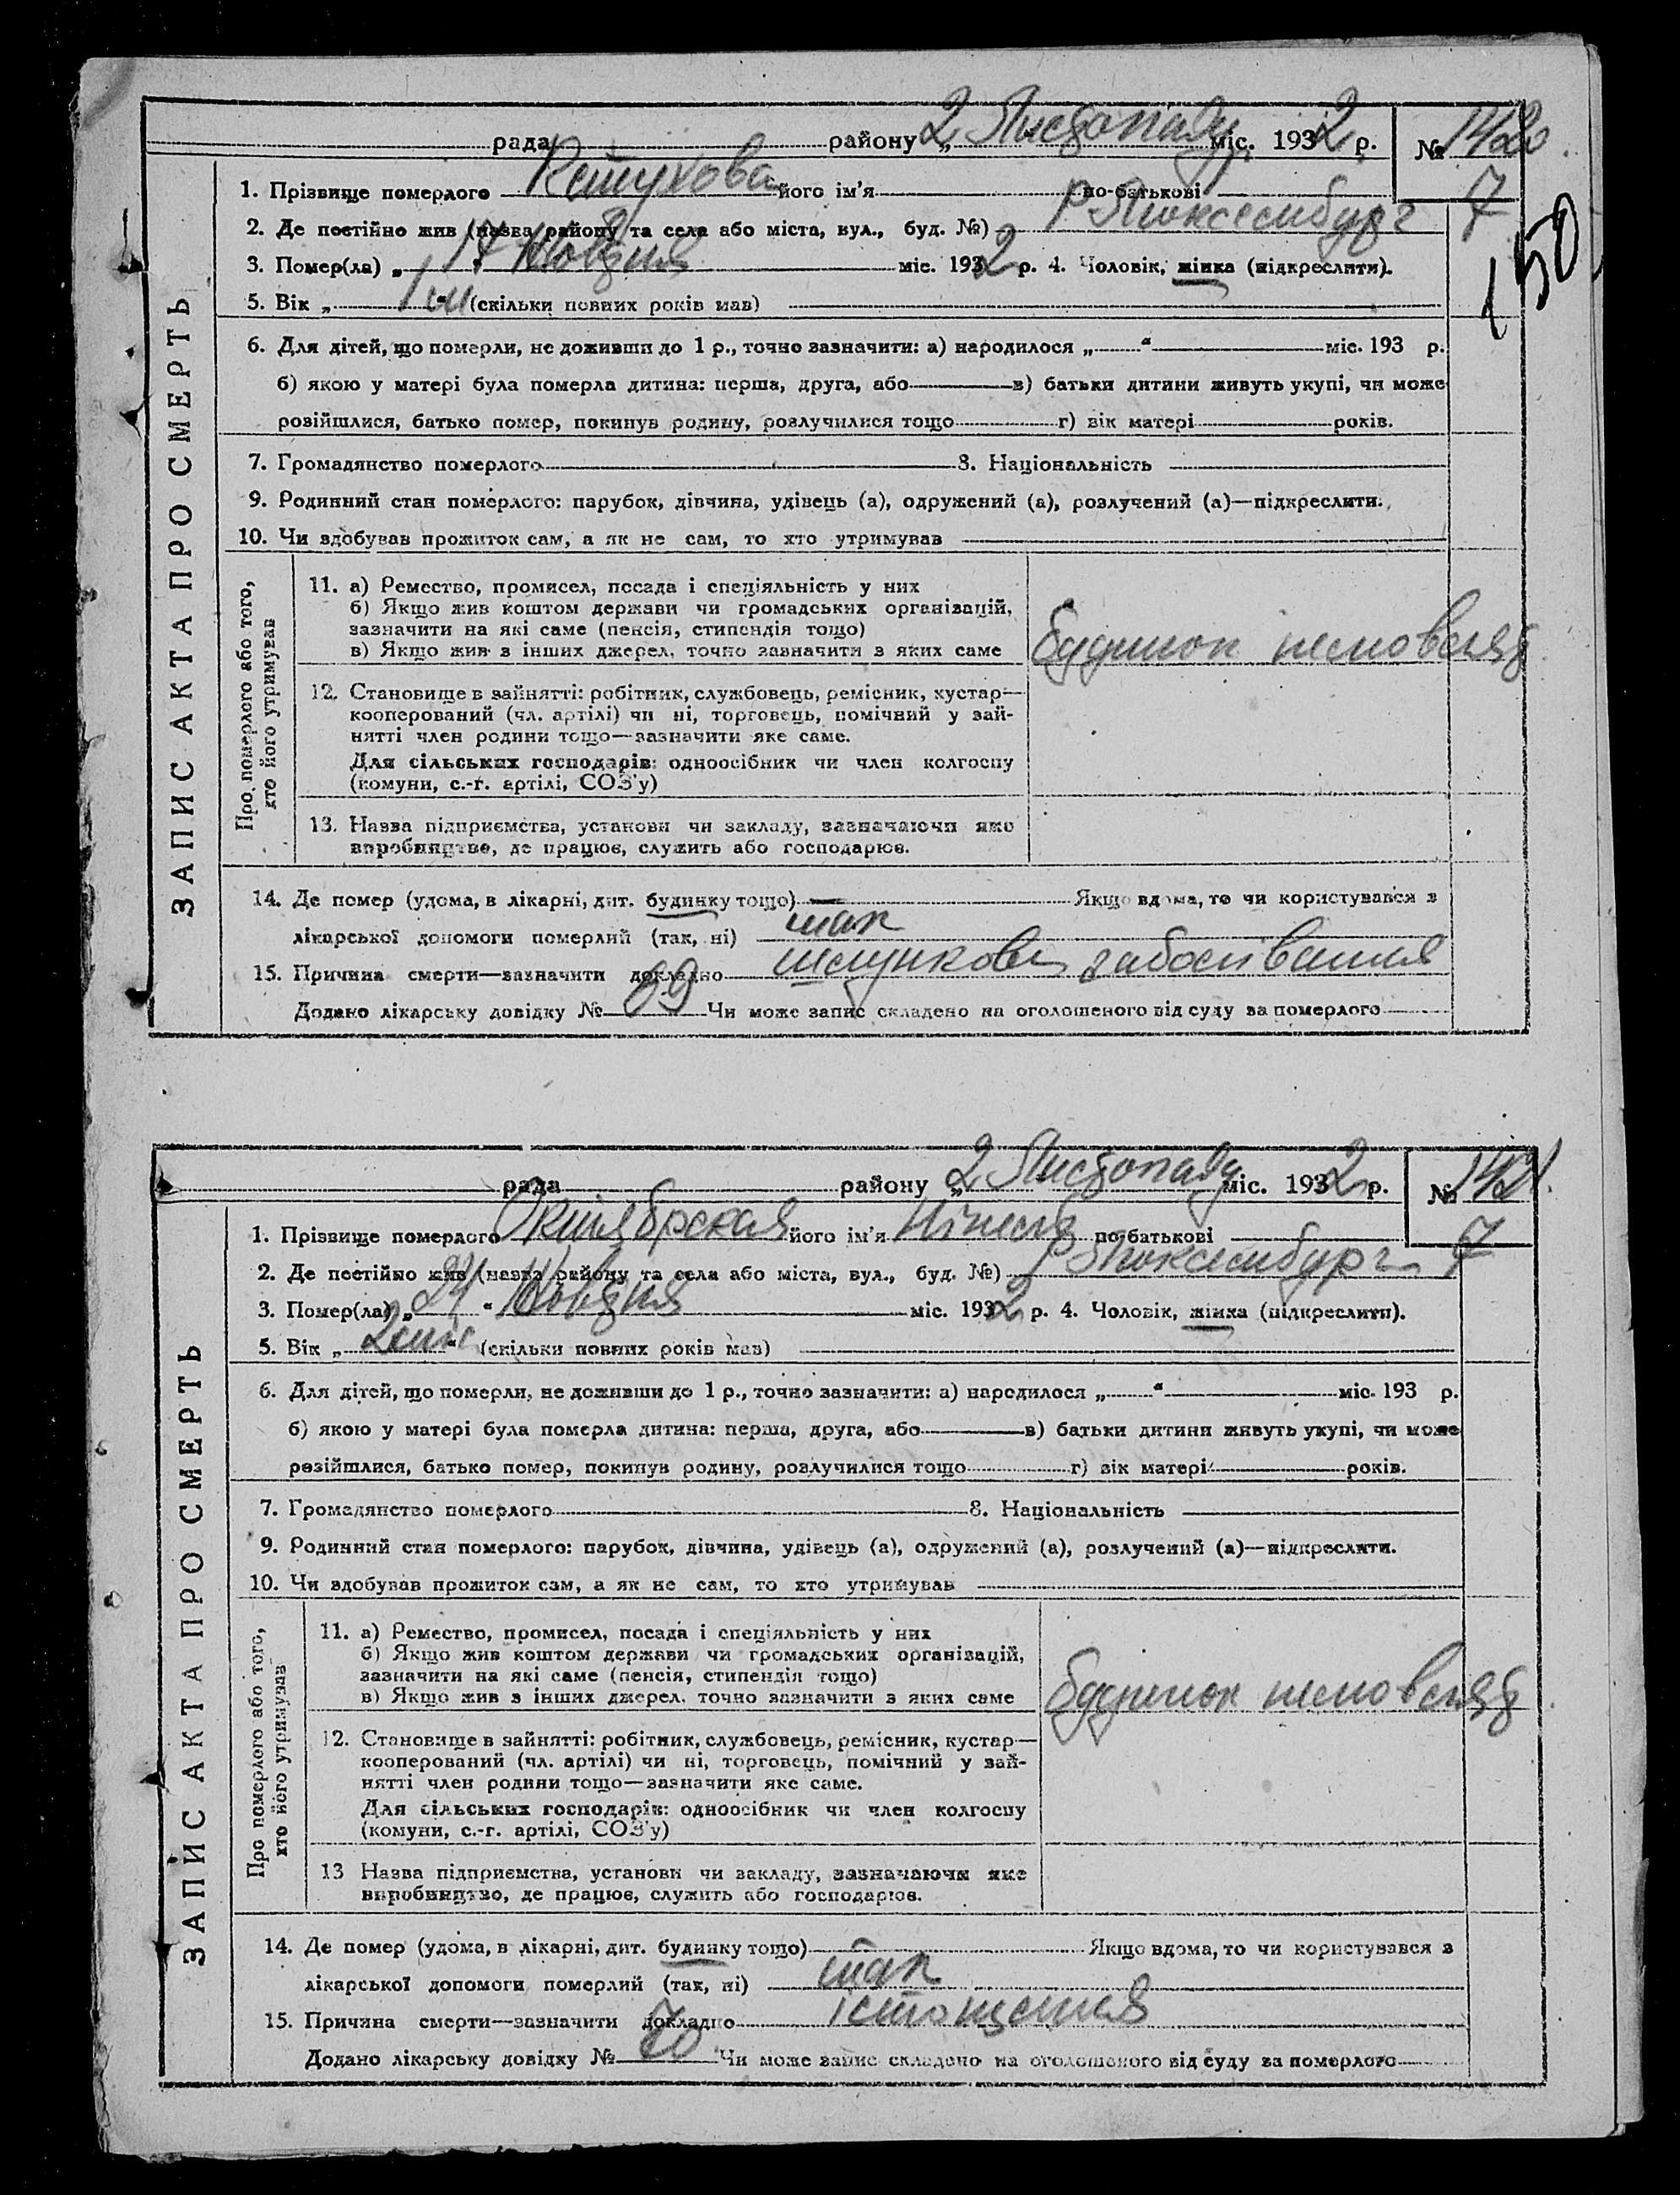 рада району „2 Листопаду міс. 1932 р. № 1420
1. Прізвище померлого Кетухова його ім'я по-батькові 7
2. Де постійно жив (назва району та села або міста, вул., буд. №) Р Люксембург
150
3. Помер(ла) „17" Жовтня міс. 1932 р. 4. Чоловік, жінка (підкреслити).
5. Вік „1 " (скільки повних років мав)
6. Для дітей, що померли, не доживши до 1 р., точно зазначити: а) народилося „ " міс. 193 р.
б) якою у матері була померла дитина: перша, друга, або в) батьки дитини живуть укупі, чи може
розійшлися, батько помер, покинув родину, розлучилися тощо г) вік матері років.
7. Громадянство померлого 8. Національність
9. Родинний стан померлого: парубок, дівчина, удівець (а), одружений (а), розлучений (а)—підкреслити.
10. Чи здобував прожиток сам, а як не сам, то хто утримував
ЗАПИС АКТА ПРО СМЕРТЬ
Про померлого або того,
хто його утримував
11. а) Ремество, промисел, посада і спеціяльність у них
б) Якщо жив коштом держави чи громадських організацій,
зазначити на які саме (пенсія, стипендія тощо)
в) Якщо жив з інших джерел, точно зазначити з яких саме
будинок немовлят
12. Становище в зайнятті: робітник, службовець, ремісник, кустар—
кооперований (чл. артілі) чи ні, торговець, помічний у зай-
нятті член родини тощо—зазначити яке саме.
Для сільських господарів: одноосібник чи член колгоспу
(комуни, с.-г. артілі, СОЗ'у)
13. Назва підприємства, установи чи закладу, зазначаючи яке
виробництво, де працює, служить або господарює.
14. Де помер (удома, в лікарні, дит. будинку тощо) Якщо вдома, то чи користувався з
лікарської допомоги померлий (так, ні) так
15. Причина смерти—зазначити докладно шлункове заболівання
Додано лікарську довідку № 69 Чи може запис складено на оголошеного від суду за померлого
рада району „2 Листопаду міс. 1932 р. № 1421.
1. Прізвище померлого Октябрская його ім'я Нінель по-батькові 7
2. Де постійно жив (назва району та села або міста, вул., буд. №) Р Люксембург
3. Помер(ла) „21" Жовтня міс. 1932 р. 4. Чоловік, жінка (підкреслити).
5. Вік „2 міс" (скільки повних років мав)
6. Для дітей, що померли, не доживши до 1 р., точно зазначити: а) народилося „ " міс. 193 р.
б) якою у матері була померла дитина: перша, друга, або в) батьки дитини живуть укупі, чи може
розійшлися, батько помер, покинув родину, розлучилися тощо г) вік матері років.
7. Громадянство померлого 8. Національність
9. Родинний стан померлого: парубок, дівчина, удівець (а), одружений (а), розлучений (а)—підкреслити.
10. Чи здобував прожиток сам, а як не сам, то хто утримував
ЗАПИС АКТА ПРО СМЕРТЬ
Про померлого або того,
хто його утримував
11. а) Ремество, промисел, посада і спеціяльність у них
б) Якщо жив коштом держави чи громадських організацій,
зазначити на які саме (пенсія, стипендія тощо)
в) Якщо жив з інших джерел, точно зазначити з яких саме
будинок немовлят
12. Становище в зайнятті: робітник, службовець, ремісник, кустар—
кооперований (чл. артілі) чи ні, торговець, помічний у зай-
нятті член родини тощо—зазначити яке саме.
Для сільських господарів: одноосібник чи член колгоспу
(комуни, с.-г. артілі, СОЗ'у)
13 Назва підприємства, установи чи закладу, зазначаючи яке
виробництво, де працює, служить або господарює.
14. Де помер (удома, в лікарні, дит. будинку тощо) Якщо вдома, то чи користувався з
лікарської допомоги померлий (так, ні) так
15. Причина смерти—зазначити докладно істощення
Додано лікарську довідку № 70 Чи може запис складено на оголошеного від суду за померлого